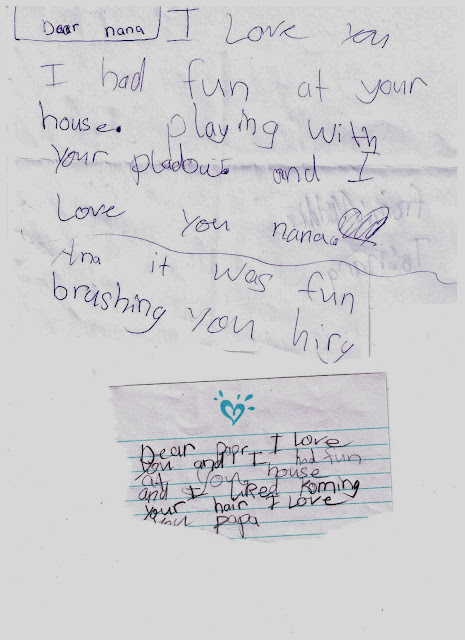 Dear nana I Love You
I had fun at your
house. playing with
your pladow. and I
Love You nana.
Ana it was fun
brushing you hiry
Dear papr I love
you and I had fun
at you house
and I liked Koming
your hair I Love
papa